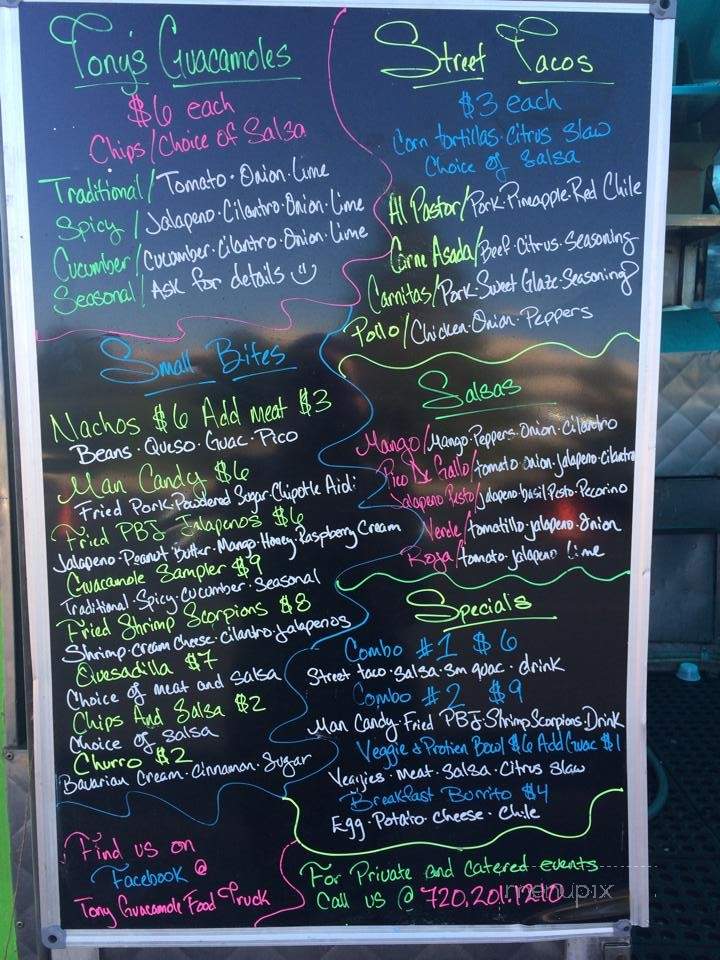 Tony's Guacamoles
$6 each
Chips/Choice of Salsa
Traditional/Tomato·Onion·Lime
Spicy/Jalapeno·Cilantro·Onion·Lime
Cucumber/Cucumber·Cilantro·Onion·Lime
Seasonal/Ask for details
Small Bites
Nachos $6 Add meat $3
Beans·Queso·Guac·Pico
Man Candy $6
Fried Pork·Powdered Sugar·Chipotle Aioli
Fried PBJ Jalapenos $6
Jalapeno·Peanut Butter·Mango·Honey·Raspberry Cream
Guacamole Sampler $9
Traditional·Spicy·Cucumber·Seasonal
Fried Shrimp Scorpions $8
Shrimp·Cream Cheese·Cilantro·Jalapenos
Quesadilla $7
Choice of meat and salsa
Chips And Salsa $2
Choice of salsa
Churro $2
Bavarian Cream·Cinnamon·Sugar
Find us on
Facebook @
Tony Guacamole Food Truck
Street Tacos
$3 each
Corn tortillas·Citrus Slaw
Choice of salsa
Al Pastor/Pork·Pineapple·Red Chile
Carne Asada/Beef·Citrus·Seasoning
Carnitas/Pork·Sweet Glaze·Seasoning
Pollo/Chicken·Onion·Peppers
Salsas
Mango/Mango·Peppers·Onion·Cilantro
Pico De Gallo/tomato·onion·jalapeno·cilantro
Jalapeno Pesto/jalapeno·basil Pesto·Pecorino
Verde/tomatillo·jalapeno·Onion
Roja/tomato·jalapeno·Lime
Specials
Combo #1 $6
Street taco·salsa·sm guac·drink
Combo #2 $9
Man Candy·Fried PBJ·Shrimp Scorpions·Drink
Veggie & Protien Bowl $6 Add Guac $1
Veggies·Meat·Salsa·Citrus Slaw
Breakfast Burrito $4
Egg·Potato·Cheese·Chile
For Private and catered events
Call us @ 720.201.1210
menupix